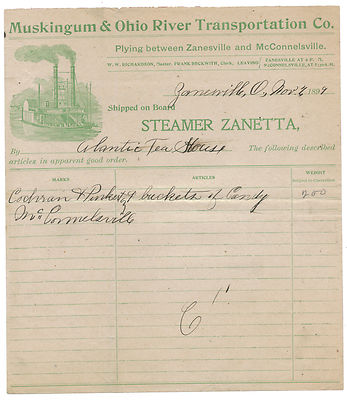 Muskingum & Ohio River Transportation Co.
Plying between Zanesville and McConnelsville.
W. W. RICHARDSON, Master. FRANK BECKWITH, Clerk. LEAVING { ZANESVILLE AT 4 P. M.
McCONNELSVILLE, AT
Zanesville, O, Nov 2 1899
Shipped on Board
STEAMER ZANETTA,
By Atlantic Tea House The following described
articles in apparent good order.
MARKS ARTICLES WEIGHT
Subject to Correction
Cochran & buckets of Candy 200
McConnelsville